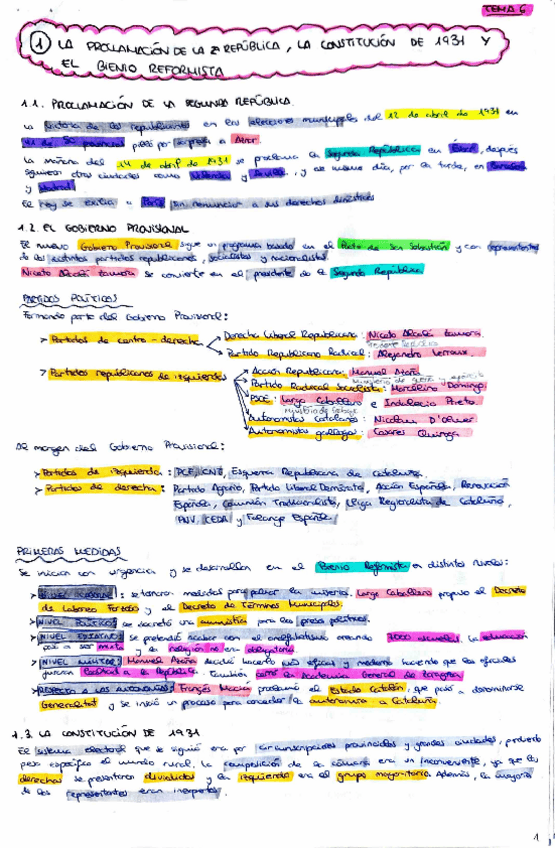 TEMA 6
1 LA PROCLAMACIÓN DE LA 2ª REPÚBLICA, LA CONSTITUCIÓN DE 1931 Y
EL BIENIO REFORMISTA
1.1. PROCLAMACIÓN DE LA SEGUNDA REPÚBLICA
La victoria de los republicanos en las elecciones municipales del 12 de abril de 1931 en
41 de 50 provincias pilló por sorpresa a Azar.
La mañana del 14 de abril de 1931 se proclama la Segunda República en Éibar, después
siguieron otras ciudades como Valencia y Sevilla, y ese mismo día, por la tarde, en Barcelona
y Madrid.
El rey se exilia a París sin renunciar a sus derechos dinásticos
1.2. EL GOBIERNO PROVISIONAL
El nuevo Gobierno Provisional sigue un programa basado en el Pacto de San Sebastián y con representantes
de los distintos partidos republicanos, socialistas y nacionalistas.
Niceto Alcalá Zamora se convierte en el presidente de la Segunda República
PARTIDOS POLÍTICOS
Formando parte del Gobierno Provisional:
> Partidos de centro-derecha
Derecha Liberal Republicana: Niceto Alcalá Zamora.
Partido Republicano Radical: Alejandro Lerroux.
> Partidos republicanos de izquierdas
Acción Republicana: Manuel Azaña
Partido Radical Socialista: Marcelino Domingo.
PSOE: Largo Caballero e Indalecio Prieto.
Autonomistas catalanes: Nicolau D'Olwer
Autonomistas gallegos: Casares Quiroga
Al margen del Gobierno Provisional:
> Partidos de izquierda: PCE, CNT, Esquerra Republicana de Cataluña.
> Partidos de derecha: Partido Agrario, Partido Liberal Demócrata, Acción Española, Renovación
Española, Comunión Tradicionalista, Lliga Regionalista de Cataluña,
PNV, CEDA y Falange Española
PRIMERAS MEDIDAS
Se inician con urgencia y se desarrollan en el Bienio Reformista a distintos niveles:
se tomaron medidas para paliar la miseria. Largo Caballero propuso el Decreto
de Laboreo Forzado y el Decreto de Términos Municipales.
> NIVEL POLÍTICO: se decretó una amnistía para los presos políticos.
> NIVEL EDUCATIVO: se pretendió acabar con el analfabetismo creando 7000 escuelas. La educación
pasó a ser mixta y la religión no era obligatoria.
> NIVEL MILITAR: Manuel Azaña decidió hacerlo más eficaz y moderno haciendo que los oficiales
juraran lealtad a la República. También cerró la Academia General de Zaragoza
> RESPECTO A LAS AUTONOMÍAS: Françes Macià proclamó el Estado Catalán, que pasó a denominarse
Generalitat y se inició un proceso para conceder la autonomía a Cataluña.
1.3. LA CONSTITUCIÓN DE 1931
El sistema electoral que se siguió era por circunscripciones provinciales y grandes ciudades, perdiendo
peso específico el mundo rural. La composición de la cámara era un inconveniente, ya que las
derechas se presentaron divididas y la izquierda era el grupo mayoritario. Además, la mayoría
de los representantes eran inexpertos.
1